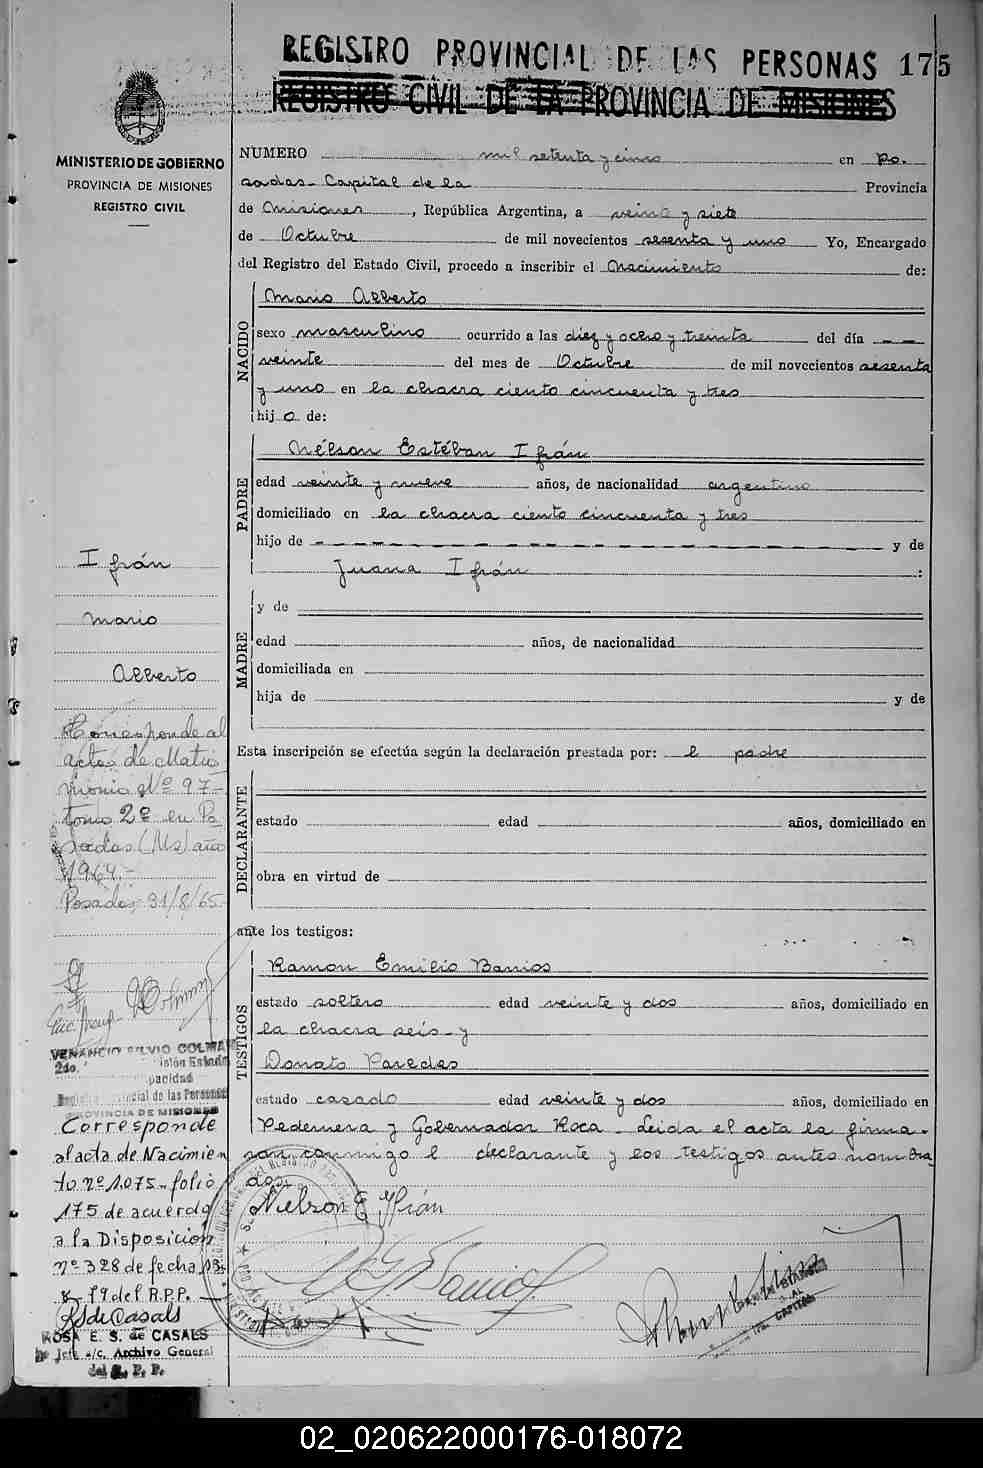 REGISTRO PROVINCIAL DE LAS PERSONAS 175
REGISTRO CIVIL DE LA PROVINCIA DE MISIONES
MINISTERIO DE GOBIERNO
PROVINCIA DE MISIONES
REGISTRO CIVIL
NUMERO mil setenta y cinco en Po.
sadas. Capital de la Provincia
de Misiones, República Argentina, a veinte y siete
de Octubre de mil novecientos sesenta y uno Yo, Encargado
del Registro del Estado Civil, procedo a inscribir el Nacimiento de:
NACIDO
Mario Alberto
sexo masculino ocurrido a las diez y ocho y treinta del día — —
veinte del mes de Octubre de mil novecientos sesenta
y uno en la chacra ciento cincuenta y tres
hijo de:
PADRE
Nélson Estéban Ifrán
edad veinte y nueve años, de nacionalidad argentino
domiciliado en la chacra ciento cincuenta y tres
hijo de - - - - - - - - - - y de
Juana Ifrán :
MADRE
y de
edad años, de nacionalidad
domiciliada en
hija de y de
Esta inscripción se efectúa según la declaración prestada por: el padre
DECLARANTE
estado edad años, domiciliado en
obra en virtud de
ante los testigos:
TESTIGOS
Ramon Emilio Barrios
estado soltero edad veinte y dos años, domiciliado en
la chacra seis y
Donato Paredes
estado casado edad veinte y dos años, domiciliado en
Pedernera y Gobernador Roca. Leida el acta la firma.
ron conmigo el declarante y los testigos antes nombra
dos.
Nelson E Ifrán
Ifrán
Mario
Alberto
Corresponde al
acta de Matri
monio Nº 97-
tomo 2º en Po
sadas (Ms) año
1964.-
Posadas, 31/8/65-
VENANCIO SILVIO COLMAN
2do.
Registro Provincial de las Personas
PROVINCIA DE MISIONES
Corresponde
al acta de Nacimien
to nº 1.075- folio
175 de acuerdo
a la Disposición
nº 328 de fecha
del R.P.P.
RSdeCasals
ROSA E. S. de CASALS
Jefe a/c. Archivo General
del R. P. P.
CAPITAL
02_020622000176-018072